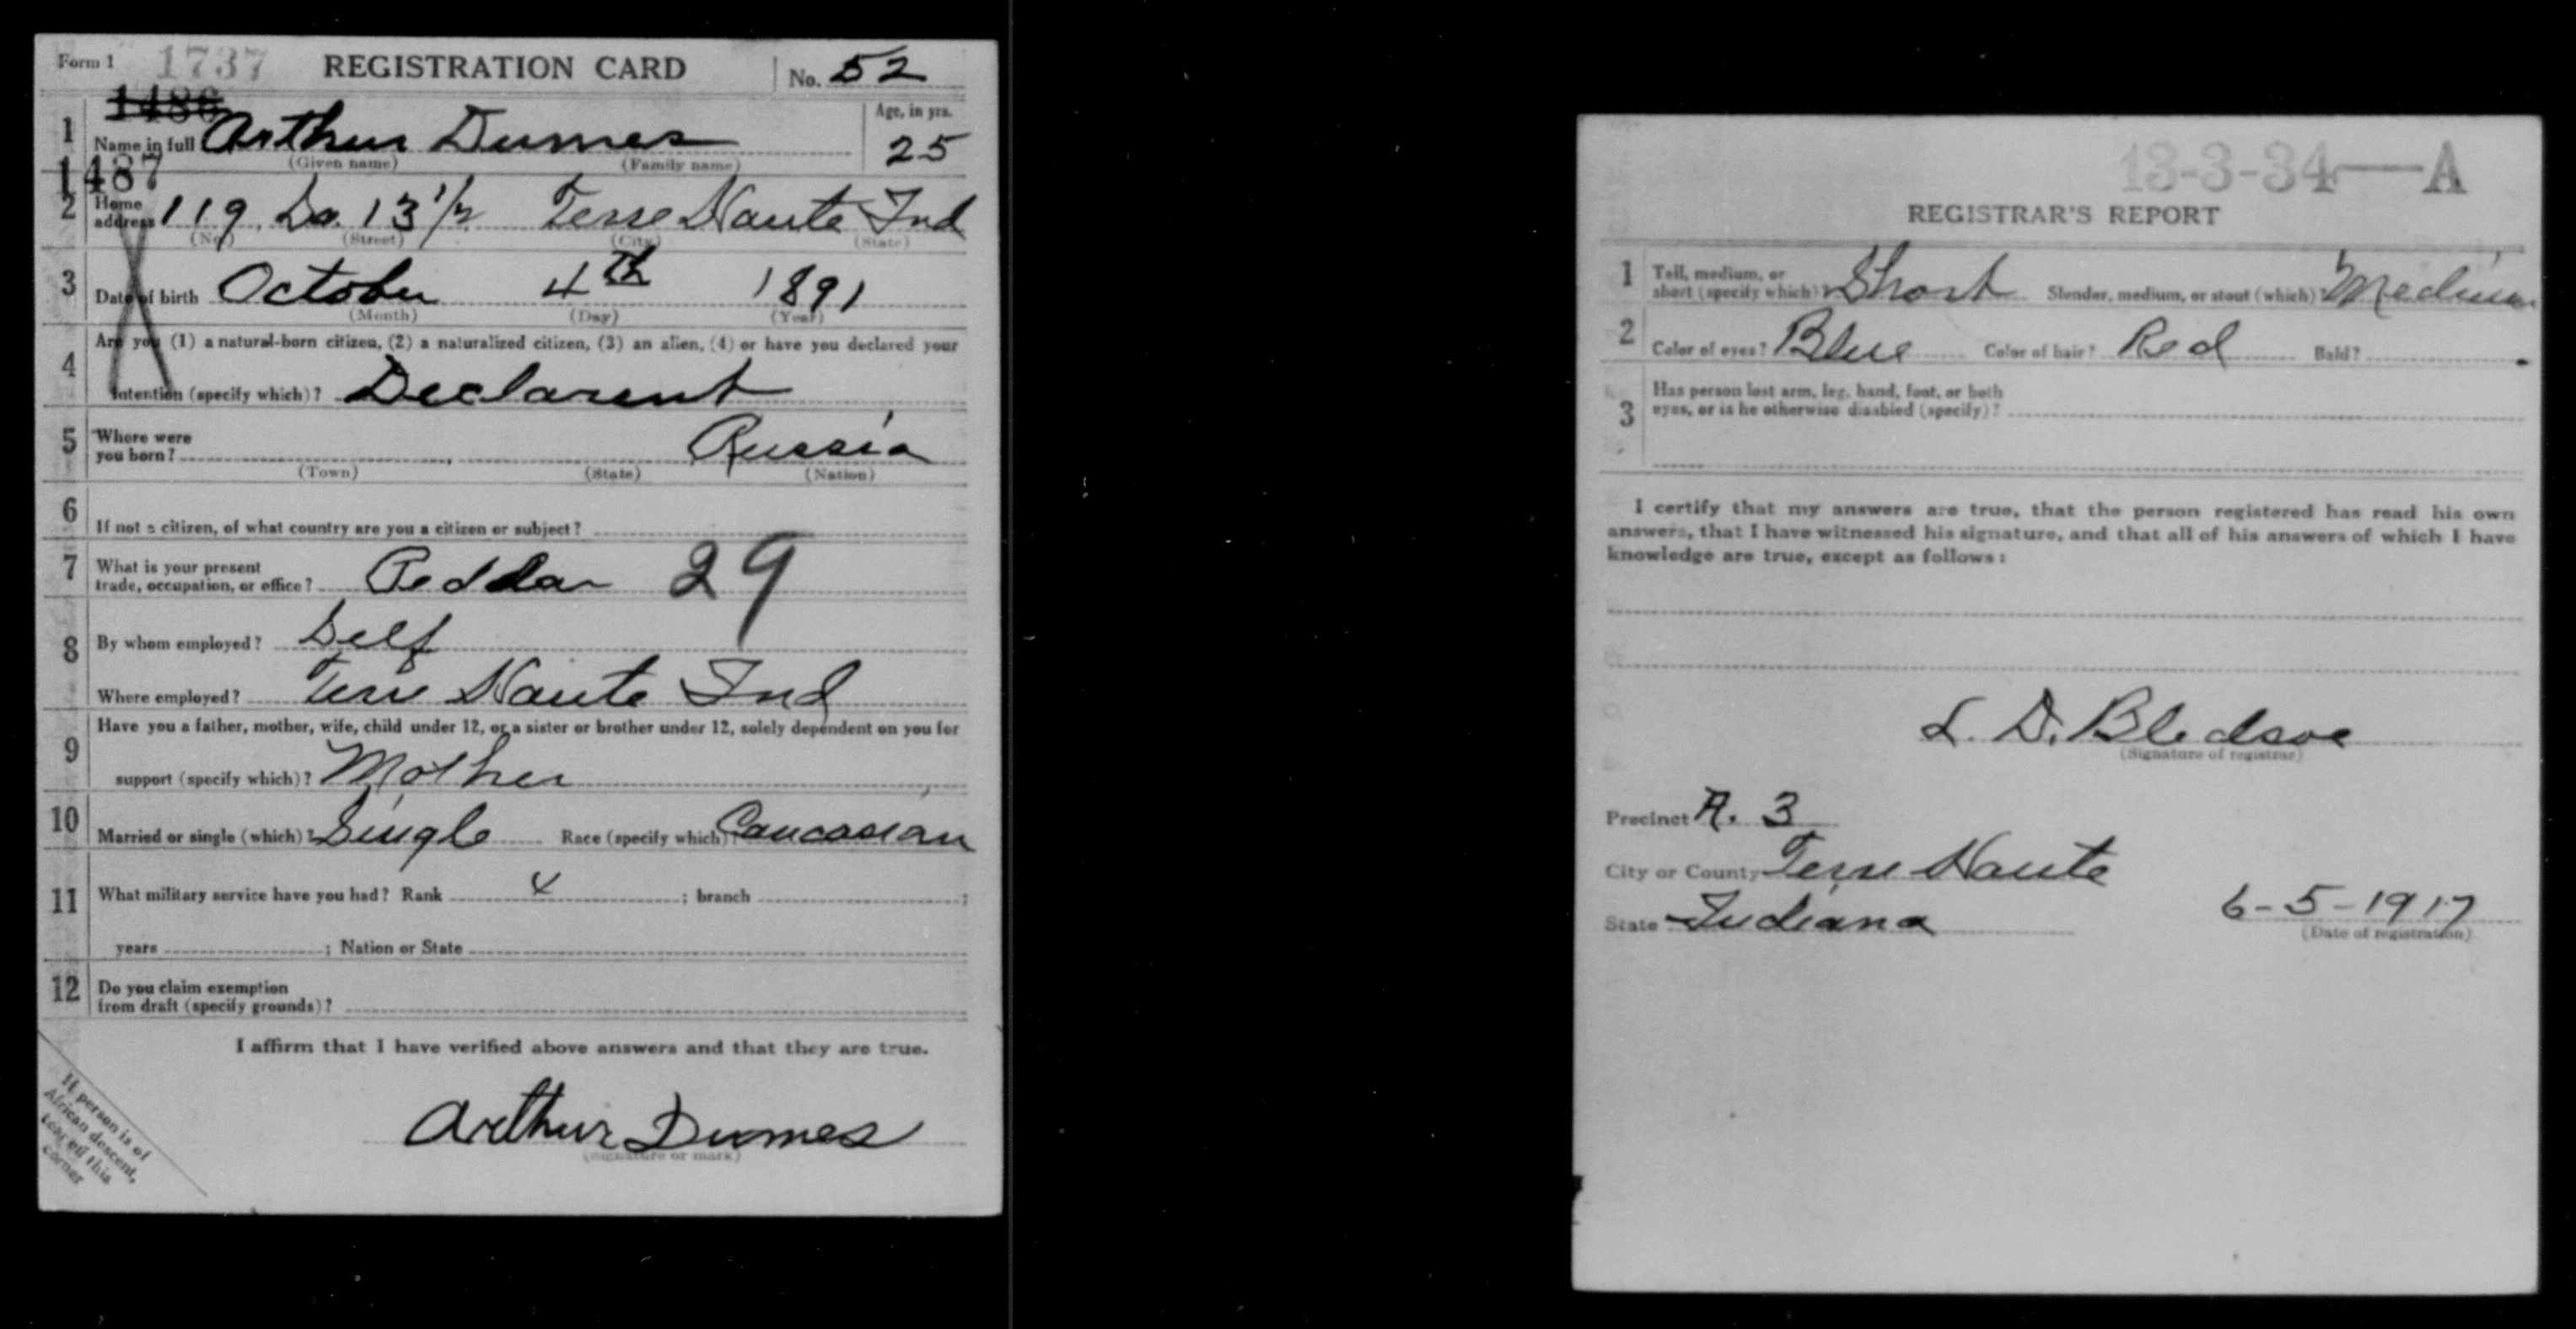 Form 1 1737 REGISTRATION CARD No. 52
1486
1 Name in full Arthur Dumes Age, in yrs. 25
(Given name) (Family name)
1487
2 Home address 119 So. 13 1/2 Terre Haute Ind
(No.) (Street) (City) (State)
3 Date of birth October 4th 1891
(Month) (Day) (Year)
4 Are you (1) a natural-born citizen, (2) a naturalized citizen, (3) an alien, (4) or have you declared your
intention (specify which)? Declarent
5 Where were you born? Russia
(Town) (State) (Nation)
6 If not a citizen, of what country are you a citizen or subject?
7 What is your present trade, occupation, or office? Peddlar 29
8 By whom employed? Self
Where employed? Terre Haute Ind
9 Have you a father, mother, wife, child under 12, or a sister or brother under 12, solely dependent on you for
support (specify which)? Mother
10 Married or single (which)? Single Race (specify which)? Caucasian
11 What military service have you had? Rank x ; branch ;
years ; Nation or State
12 Do you claim exemption
from draft (specify grounds)?
I affirm that I have verified above answers and that they are true.
Arthur Dumes
(signature or mark)
If person is of
African descent,
tear off this
corner
13-3-34—A
REGISTRAR'S REPORT
1 Tall, medium, or short (specify which)? Short Slender, medium, or stout (which)? Medium
2 Color of eyes? Blue Color of hair? Red Bald?
3 Has person lost arm, leg, hand, foot, or both
eyes, or is he otherwise disabled (specify)?
I certify that my answers are true, that the person registered has read his own
answers, that I have witnessed his signature, and that all of his answers of which I have
knowledge are true, except as follows:
L. D. Bledsoe
(Signature of registrar)
Precinct A. 3
City or County Terre Haute
State Indiana 6-5-1917
(Date of registration)